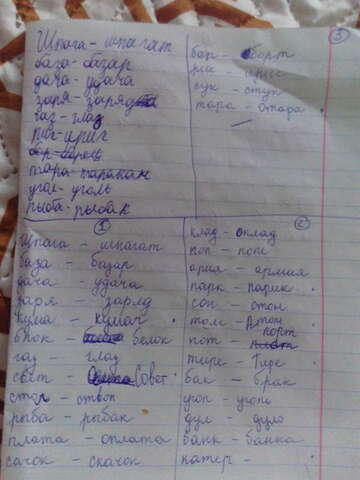 Шпага - шпагат
база - базар
дача - удача
заря - заряд
газ - глаз
рис - ирис
бор - борец
тара - таракан
угол - уголь
рыба - рыбак
3
бор - борт
рис - ирис
сук - стук
тара - отара
1
шпага - шпагат
база - базар
дача - удача
заря - заряд
кума - кумач
блок - белок
газ - глаз
свет - Совет
стол - ствол
рыба - рыбак
плата - оплата
сачок - скачок
2
клад - оклад
поп -
ария - армия
парк - парик
сон - стон
том - Атом
пот - порт
тире - Тигре
бак - брак
угол - уголь
дул - дуло
банк - банка
катер -